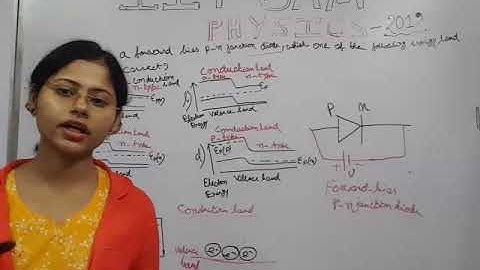 IIT JAM
PHYSICS-2019
a forward bias p-n junction diode, which one of the following energy band
correct
conduction
n-type
EF(n)
b)
Conduction band
p-type
n-type
EF
Electron
Energy
valence band
d)
Conduction band
P-type
n-type
EF(P)
EF(n)
Electron
Energy
Valence band
P
N
+
V
-
Forward bias
P-n junction diode
Conduction band
valence
band
e-
e-
e-